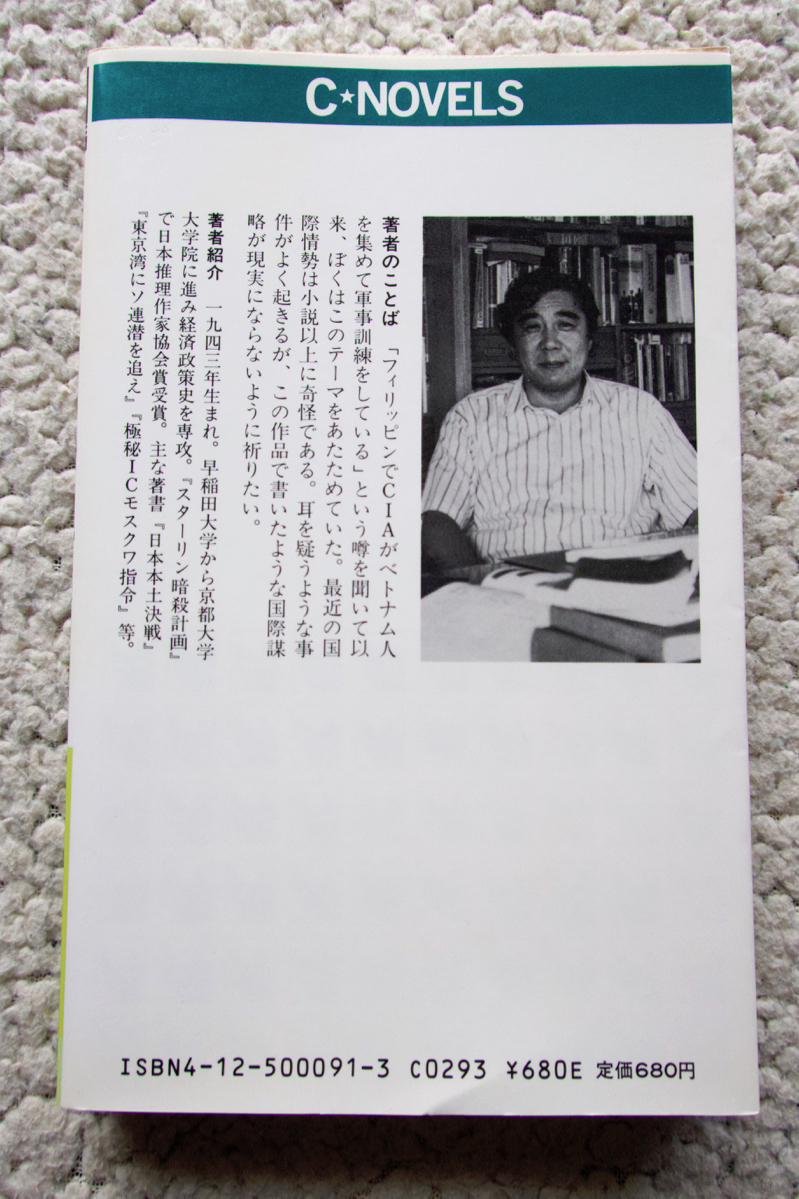 C★NOVELS
著者のことば 「フィリッピンでCIAがベトナム人
を集めて軍事訓練をしている」という噂を聞いて以
来、ぼくはこのテーマをあたためていた。最近の国
際情勢は小説以上に奇怪である。耳を疑うような事
件がよく起きるが、この作品で書いたような国際謀
略が現実にならないように祈りたい。
著者紹介 一九四三年生まれ。早稲田大学から京都大学
大学院に進み経済政策史を専攻。『スターリン暗殺計画』
で日本推理作家協会賞受賞。主な著書『日本本土決戦』
『東京湾にソ連潜を追え』『極秘ICモスクワ指令』等。
ISBN4-12-500091-3 C0293 ¥680E 定価680円